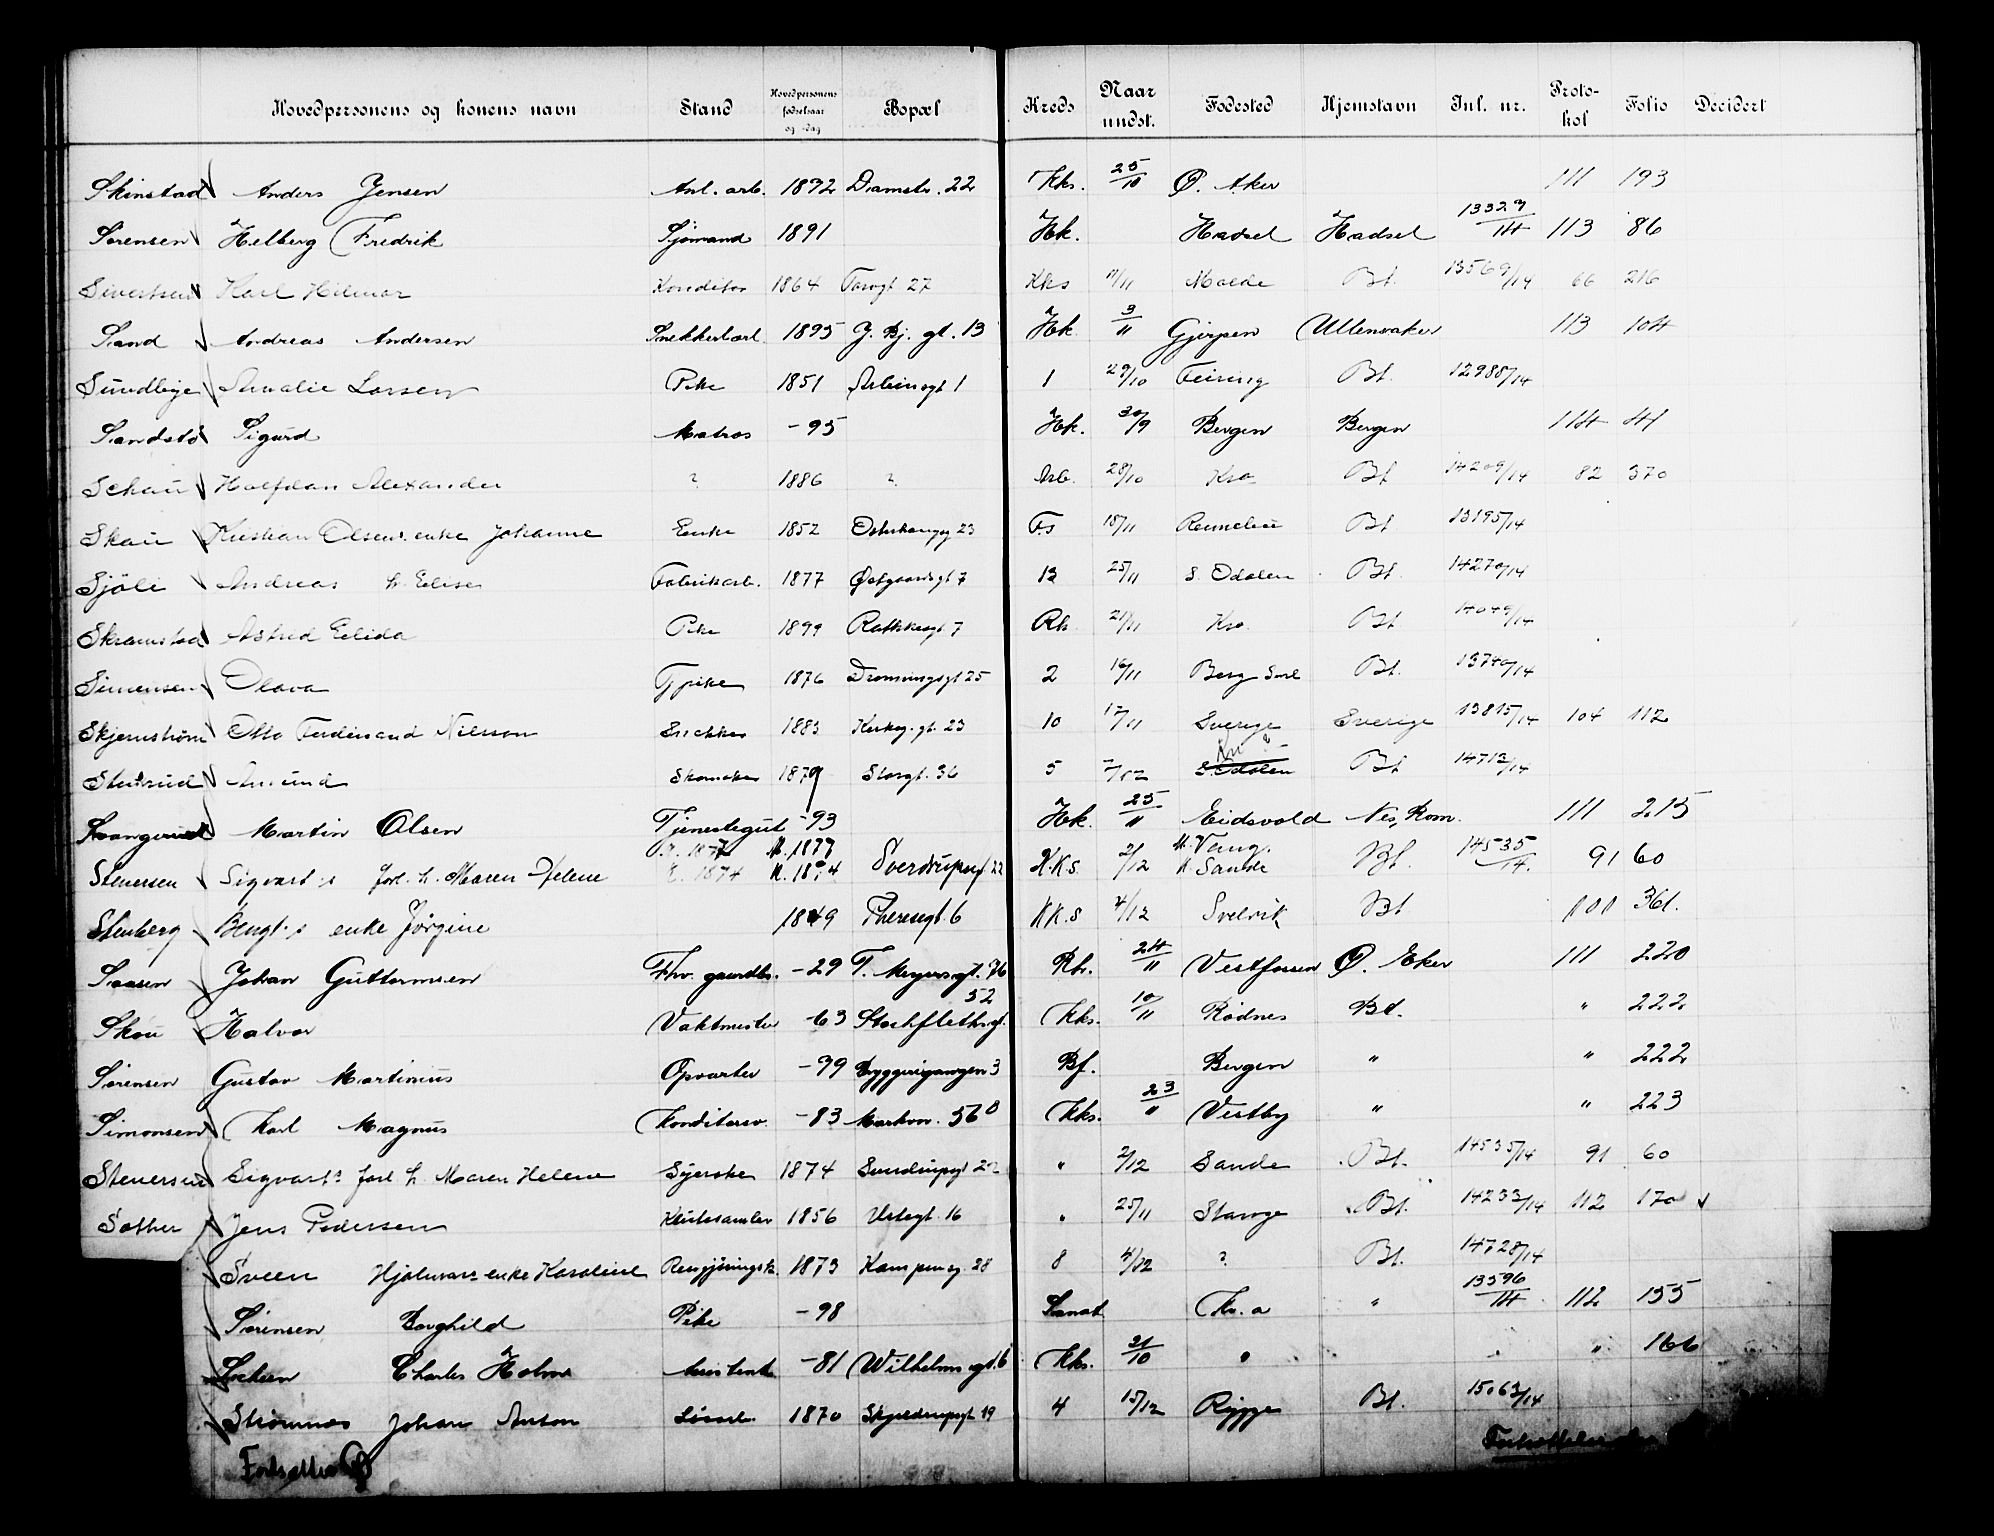 Hovedpersonens og konens navn Stand Hovedpersonens fødselsaar og -dag Bopæl Kreds Naar undst. Fødested Hjemstavn Inl. nr. Protokol Folio Decidert
Skinstad Anders Jensen Anl. arb. 1892 Damstr. 22 Kks. 25/10 Ø. Aker 111 193
Sørensen Helberg Fredrik Sjømand 1891 Hk. Hadsel Hadsel 13329/14 113 86
Sivertsen Karl Hilmar Konditor 1864 Torvgt 27 Kks /11 Molde Bt. 13569/14 66 216
Sand Andreas Andersen Snekkerlærl. 1895 J. Bj. gt. 13 Hk. 3/11 Gjerpen Ullensaker 113 104
Sundbye Amalie Larsen Pike 1851 gt 1 1 29/10 Feiring Bt. 12988/14
Sandstø Sigurd Matros -95 Hk. 30/9 Bergen Bergen 114 41
Schau Halfdan Alexander ? 1886 ? Arb. 28/10 Kra Bt 14209/14 82 370
Skau Kristian Olsens enke Johanne Enke 1852 23 Fs 18/11 Bt. 13195/14
Sjöli Andreas h. Elise Fabrikarb. 1877 Østgaardsgt 7 13 25/11 S. Odalen Bt. 14270/14
Skramstad Astrid Elida Pike 1899 Rathkesgt 7 Rh. 21/11 Kra. Bt. 14049/14
Simensen Olava Tjpike 1876 Dronningsgt 25 2 16/11 Berg Sml Bt. 13740/14
Skjernstrøm Otto Ferdinand Nilsson Snekker 1883 Kirkeg. gt. 23 10 12/11 Sverige Sverige 13815/14 104 112
Stensrud Amund Skomaker 1879 Storgt. 36 5 2/12 S Odalen Bt 14712/14
Martin Olsen Tjenestegut -93 Hk. 25/11 Eidsvold Nes, Rom. 111 215
Stenersen Sigvart s forl. h. Maren Helene M. 1877 K. 1874 Sverdrupsgt 22 K.K.S. 2/12 M. Vang. K. Sande Bt. 14535/14. 91 60
Stenberg Bengt s enke Jørgine 1849 Theresegt. 6 KK.S 4/12 Svelvik Bt 101 361.
Saasen Johan Guttormsen Fhv. gaardbr. -29 T. Meyersgt. 76 Rh. 24/11 Vestfossen Ø. Eker 111 220
Skou Halvor Vaktmester -63 Stockflethsgt. 52 Kks. 10/11 Rødnes Bt. " 222
Sørensen Gustav Martinius Opvarter -99 Bryggerigangen 3 Bf. Bergen " " 222
Simonsen Karl Magnus Konditorsv. -83 Markvn. 56 b Kks. 23/11 Vestby " " 223
Stenersen Sigvarts forl h. Maren Helene Syerske 1874 Sverdrupsgt 22 " 2/12 Sande Bt. 14535/14 91 60
Søther Jens Pedersen Klutesamler 1856 Urtegt. 16 " 25/11 Stange Bt. 14233/14 112 170
Sveen Hjalmars enke Karoline Rengjøringsk. 1873 Kampensg. 28 8 4/12 ? Bt. 14728/14
Sørensen Borghild Pike -98 Sanat Kr.a " 13596/14 112 155
Charles Holm Assistent -81 Wilhelms gt. 6 Kks. 21/10 " " " 166
Strømnæs Johan Anton 1870 Skjoldrupsgt 19 4 15/12 Rygge Bt. 15063/14